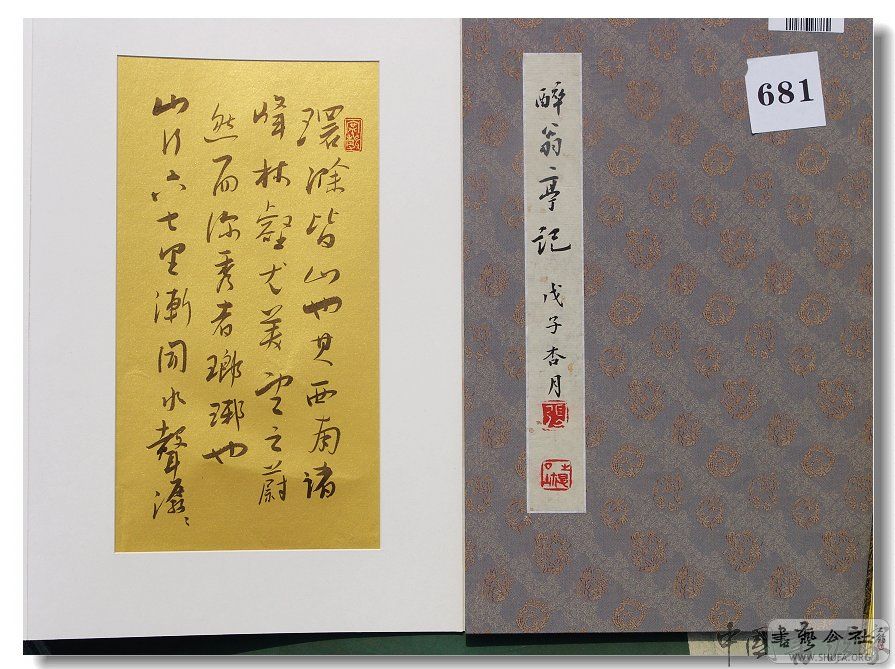 醉翁亭記 戊子杏月
681
環滁皆山也其西南諸
峰林壑尤美望之蔚
然而深秀者瑯琊也
山行六七里漸聞水聲潺〻
中國書藝公社
WWW.SHUFA.ORG